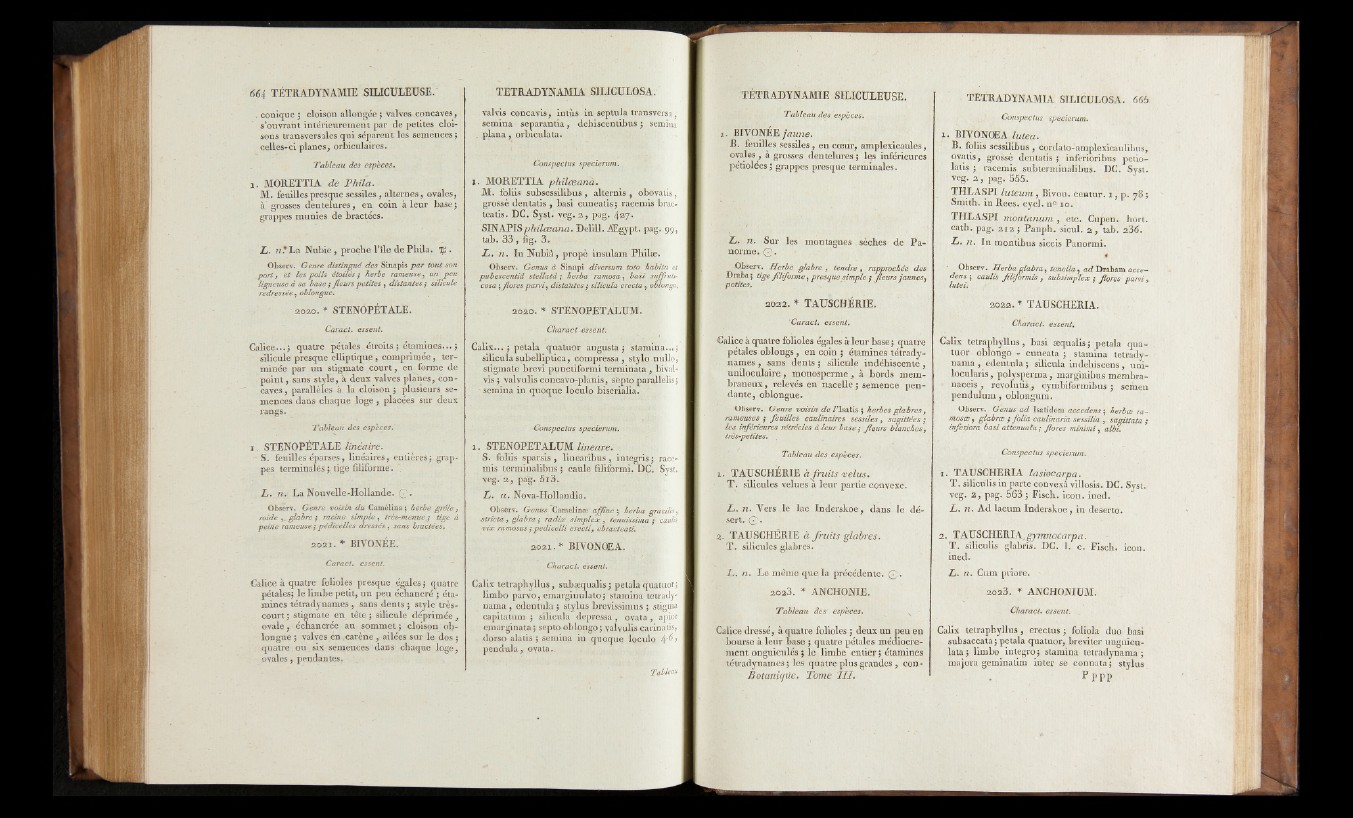 664 TÉTRADYNAMIE SILICULEUSE.
conique ; cloison allongée ; valves concaves,
s'ouvrant intérieurement par de petites cloi-
sons transversales qui séparent les semences ;
celles-ci planes, orbiculaires.
Tableau des espèces.
1. MORETTIA de Phila.
M. feuilles presque sessiles, alternes, ovales,
à grosses dentelures, en coin à leur base ;
grappes munies de bractées.
L. n. La Nubie, proche l'île de Phila. ♃.
Observ. Genre distingué des Sinapis par tout son
port, et les poils étoilés ; herbe rameuse, un peu
ligneuse à sa base ; fleurs petites, distantes ; silicule
redressée, oblongue.
2020. * STENOPÉTALE.
Caract. essent.
Calice... ; quatre pétales étroits ; étamines... ;
silicule presque elliptique, comprimée, ter-
minée par un stigmate court, en forme de
point, sans style, à deux valves planes, con-
caves, parallèles à la cloison ; plusieurs se-
mences dans chaque loge, placées sur deux
rangs.
Tableau des espèces.
1. STENOPÉTALE linéaire.
S. feuilles éparses, linéaires, entières ; grap-
pes terminales ; tige filiforme.
L. n. La Nouvelle-Hollande. ☉.
Observ. Genre voisin du Camélina ; herbe grêle,
roide, glabre ; racine simple, très-menue ; tige à
peine rameuse ; pédicelles dressés, sans bractées.
2021. * BIVONÉE.
Caract. essent.
Calice à quatre folioles presque égales ; quatre
pétales ; le limbe petit, un peu échancré ; éta-
mines tétradynames, sans dents ; style très-
court ; stigmate en tête ; silicule déprimée,
ovale, échancrée au sommet ; cloison ob-
longue ; valves en carène, ailées sur le dos ;
quatre ou six semences dans chaque loge,
ovales, pendantes.
TETRADYNAMIA SILICULOSA.
valvis concavis, intùs in septula transversa,
semina separantia, dehiscentibus ; semina
plana, orbiculata.
Conspectus specierum.
1. MORETTIA philæana.
M. foliis subsessilibus, alternis, obovatis,
grossè dentatis, basi cuneatis ; racemis brac-
teatis. DC. Syst. veg. 2, pag. 427.
SINAPIS philæana. Delill. Ægypt. pag. 99,
tab. 33, fig. 3.
L. n. In Nubiâ, propè insulam Philæ.
Observ. Genus à Sinapi diversum toto habitu et
pubescentiâ stellatâ ; herba ramosa, basi suffruti-
cosa ; flores parvi, distantes ; silicula erecta, oblonga.
2020. * STENOPETALUM.
Charact. essent.
Calix... ; petala quatuor angusta ; stamina... ;
silicula subelliptica, compressa, stylo nullo,
stigmate brevi punctiformi terminata, bival-
vis ; valvulis concavo-planis, septo parallelis ;
semina in quoque loculo biserialia.
Conspectus specierum.
1. STENOPETALUM lineare.
S. foliis sparsis, linearibus, integris ; race-
mis terminalibus ; caule filiformi. DC. Syst.
veg. 2, pag. 513.
L. n. Nova-Hollandia.
Observ. Genus Camelinæ affine ; herba gracilis,
stricta, glabra ; radix simplex, tenuissima ; caulis
vix ramosus ; pedicelli erecti, ebracteati.
2021. * BIVONŒA.
Charact. essent.
Calix tetraphyllus, subæqualis ; petala quatuor ;
limbo parvo, emarginulato ; stamina tetrady-
nama, edentula ; stylus brevissimus ; stigma
capitatum ; silicula depressa, ovata, apice
emarginata ; septo oblongo ; valvulis carinatis,
dorso alatis ; semina in quoque loculo 4-6,
pendula, ovata.
Tableau
TÉTRADYNAMIE SILICULEUSE.
Tableau des espèces.
1. BIVONÉE jaune.
B. feuilles sessiles, en cœur, amplexicaules,
ovales, à grosses dentelures ; les inférieures
pétiolées ; grappes presque terminales.
L. n. Sur les montagnes sèches de Pa-
norme. ☉.
Observ. Herbe glabre, tendre, rapprochée des
Draba ; tige filiforme, presque simple ; fleurs jaunes,
petites.
2022. * TAUSCHÉRIE.
Caract. essent.
Calice à quatre folioles égales à leur base ; quatre
pétales oblongs, en coin ; étamines tétrady-
names, sans dents ; silicule indéhiscente,
uniloculaire, monosperme, à bords mem-
braneux, relevés en nacelle ; semence pen-
dante, oblongue.
Observ. Genre voisin de l'Isatis ; herbes glabres,
rameuses ; feuilles caulinaires sessiles, sagittées ;
les inférieures rétrécies à leur base ; fleurs blanches,
très-petites.
Tableau des espèces.
1. TAUSCHÉRIE à fruits velus.
T. silicules velues à leur partie convexe.
L. n. Vers le lac Inderskoe, dans le dé-
sert. ☉.
2. TAUSCHÉRIE à fruits glabres.
T. silicules glabres.
L. n. Le même que la précédente. ☉.
2023. * ANCHONIE.
Tableau des espèces.
Calice dressé, à quatre folioles ; deux un peu en
bourse à leur base ; quatre pétales médiocre-
ment onguiculés ; le limbe entier ; étamines
tétradynames ; les quatre plus grandes, con-
Botanique. Tome III.
TÉTRADYNAMIA SILICULOSA. 665
Conspectus specierum.
1. BIVONŒA lutea.
B. foliis sessilibus, cordato-amplexicaulibus,
ovatis, grossè dentatis ; inferioribus petio-
latis ; racemis subterminalibus. DC. Syst.
veg. 2, pag. 555.
THLASPI luteum, Bivon. centur. 1, p. 78 ;
Smith. in Rees. cycl. n° 10.
THLASPI montanum, etc. Cupan. hort.
cath. pag. 212 ; Panph. sicul. 2, tab. 236.
L. n. In montibus siccis Panormi.
Observ. Herba glabra, tenella, ad Drabam acce-
dens ; caulis filiformis, subsimplex ; flores parvi,
lutei.
2022. * TAUSCHERIA.
Charact. essent.
Calix tetraphyllus, basi æqualis ; petala qua-
tuor oblongo-cuneata ; stamina tetrady-
nama, edentula ; silicula indehiscens, uni-
locularis, polysperma, marginibus membra-
naceis, revolutis, cymbiformibus ; semen
pendulum, oblongum.
Observ. Genus ad Isatidem accedens ; herbæ ra-
mosæ, glabræ ; folia caulinaria sessilia, sagittata ;
inferiora basi attenuata ; flores minimi, albi.
Conspectus specierum.
1. TAUSCHERIA lasiocarpa.
T. siliculis in parte convexâ villosis. DC. Syst.
veg. 2, pag. 563 ; Fisch. icon. ined.
L. n. Ad lacum Inderskoe, in deserto.
2. TAUSCHERIA gymnocarpa.
T. siliculis glabris. DC. l. c. Fisch. icon.
ined.
L. n. Cum priore.
2023. * ANCHONIUM.
Charact. essent.
Calix tetraphyllus, erectus ; foliola duo basi
subsaccata ; petala quatuor, breviter unguicu-
lata ; limbo integro ; stamina tetradynama ;
majora geminatim inter se connata ; stylus
P p p p